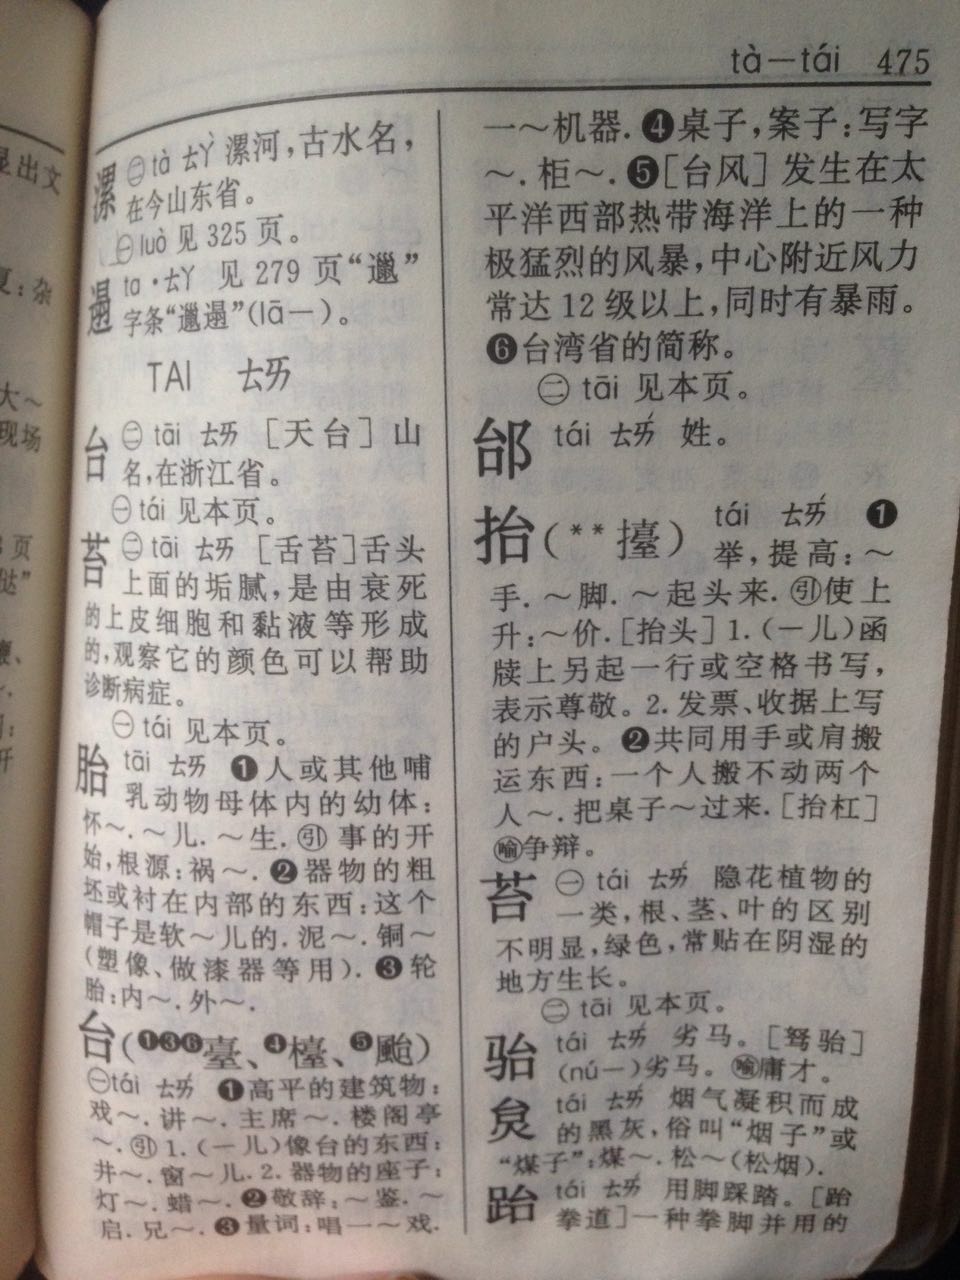 tà－tái 475
显出文
夏：杂
大～
现场
页
漯 ㊀tà ㄊㄚˋ 漯河，古水名，
在今山东省。
㊁luò 见 325 页。
遢 ta ·ㄊㄚ 见 279 页“邋”
字条“邋遢”(lā－)。
TAI ㄊㄞ
台 ㊁ tāi ㄊㄞ ［天台］山
名,在浙江省。
㊀tái 见本页。
苔 ㊁ tāi ㄊㄞ ［舌苔］舌头
上面的垢腻，是由衰死
的上皮细胞和黏液等形成
的，观察它的颜色可以帮助
诊断病症。
㊀tái 见本页。
胎 tāi ㄊㄞ ❶人或其他哺
乳动物母体内的幼体：
怀～．～儿．～生．㊁引 事的开
始，根源：祸～．❷器物的粗
坯或衬在内部的东西：这个
帽子是软～儿的．泥～．铜～
(塑像、做漆器等用)．❸轮
胎：内～．外～．
台(❶❸❻臺、❹檯、❺颱)
㊀tái ㄊㄞˊ ❶高平的建筑物：
戏～．讲～．主席～．楼阁亭
～．引 1.(－儿)像台的东西：
井～．窗～儿．2.器物的座子：
灯～．蜡～．❷敬辞：～鉴．～
启．兄～．❸量词：唱一～戏．
一～机器．❹桌子，案子：写字
～．柜～．❺［台风］发生在太
平洋西部热带海洋上的一种
极猛烈的风暴，中心附近风力
常达 12 级以上，同时有暴雨。
❻台湾省的简称。
㊁ tāi 见本页。
邰 tái ㄊㄞˊ 姓。
抬(**擡) tái ㄊㄞˊ ❶
举，提高：～
手．～脚．～起头来．引使上
升：～价．［抬头］1.(－儿)函
牍上另起一行或空格书写，
表示尊敬。2.发票、收据上写
的户头。❷共同用手或肩搬
运东西：一个人搬不动两个
人～．把桌子～过来．［抬杠］
喻争辩。
苔 ㊀ tái ㄊㄞˊ 隐花植物的
一类，根、茎、叶的区别
不明显，绿色，常贴在阴湿的
地方生长。
㊁ tāi 见本页。
骀 tái ㄊㄞˊ 劣马。［驽骀］
(nú－)劣马。喻庸才。
炱 tái ㄊㄞˊ 烟气凝积而成
的黑灰，俗叫“烟子”或
“煤子”：煤～．松～(松烟)．
跆 tái ㄊㄞˊ 用脚踩踏。［跆
拳道］一种拳脚并用的